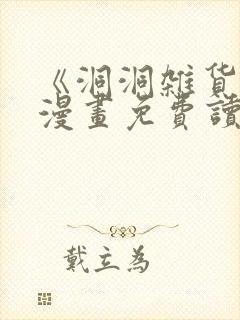 《洞洞雑货
漫畫免費讀
戴立為